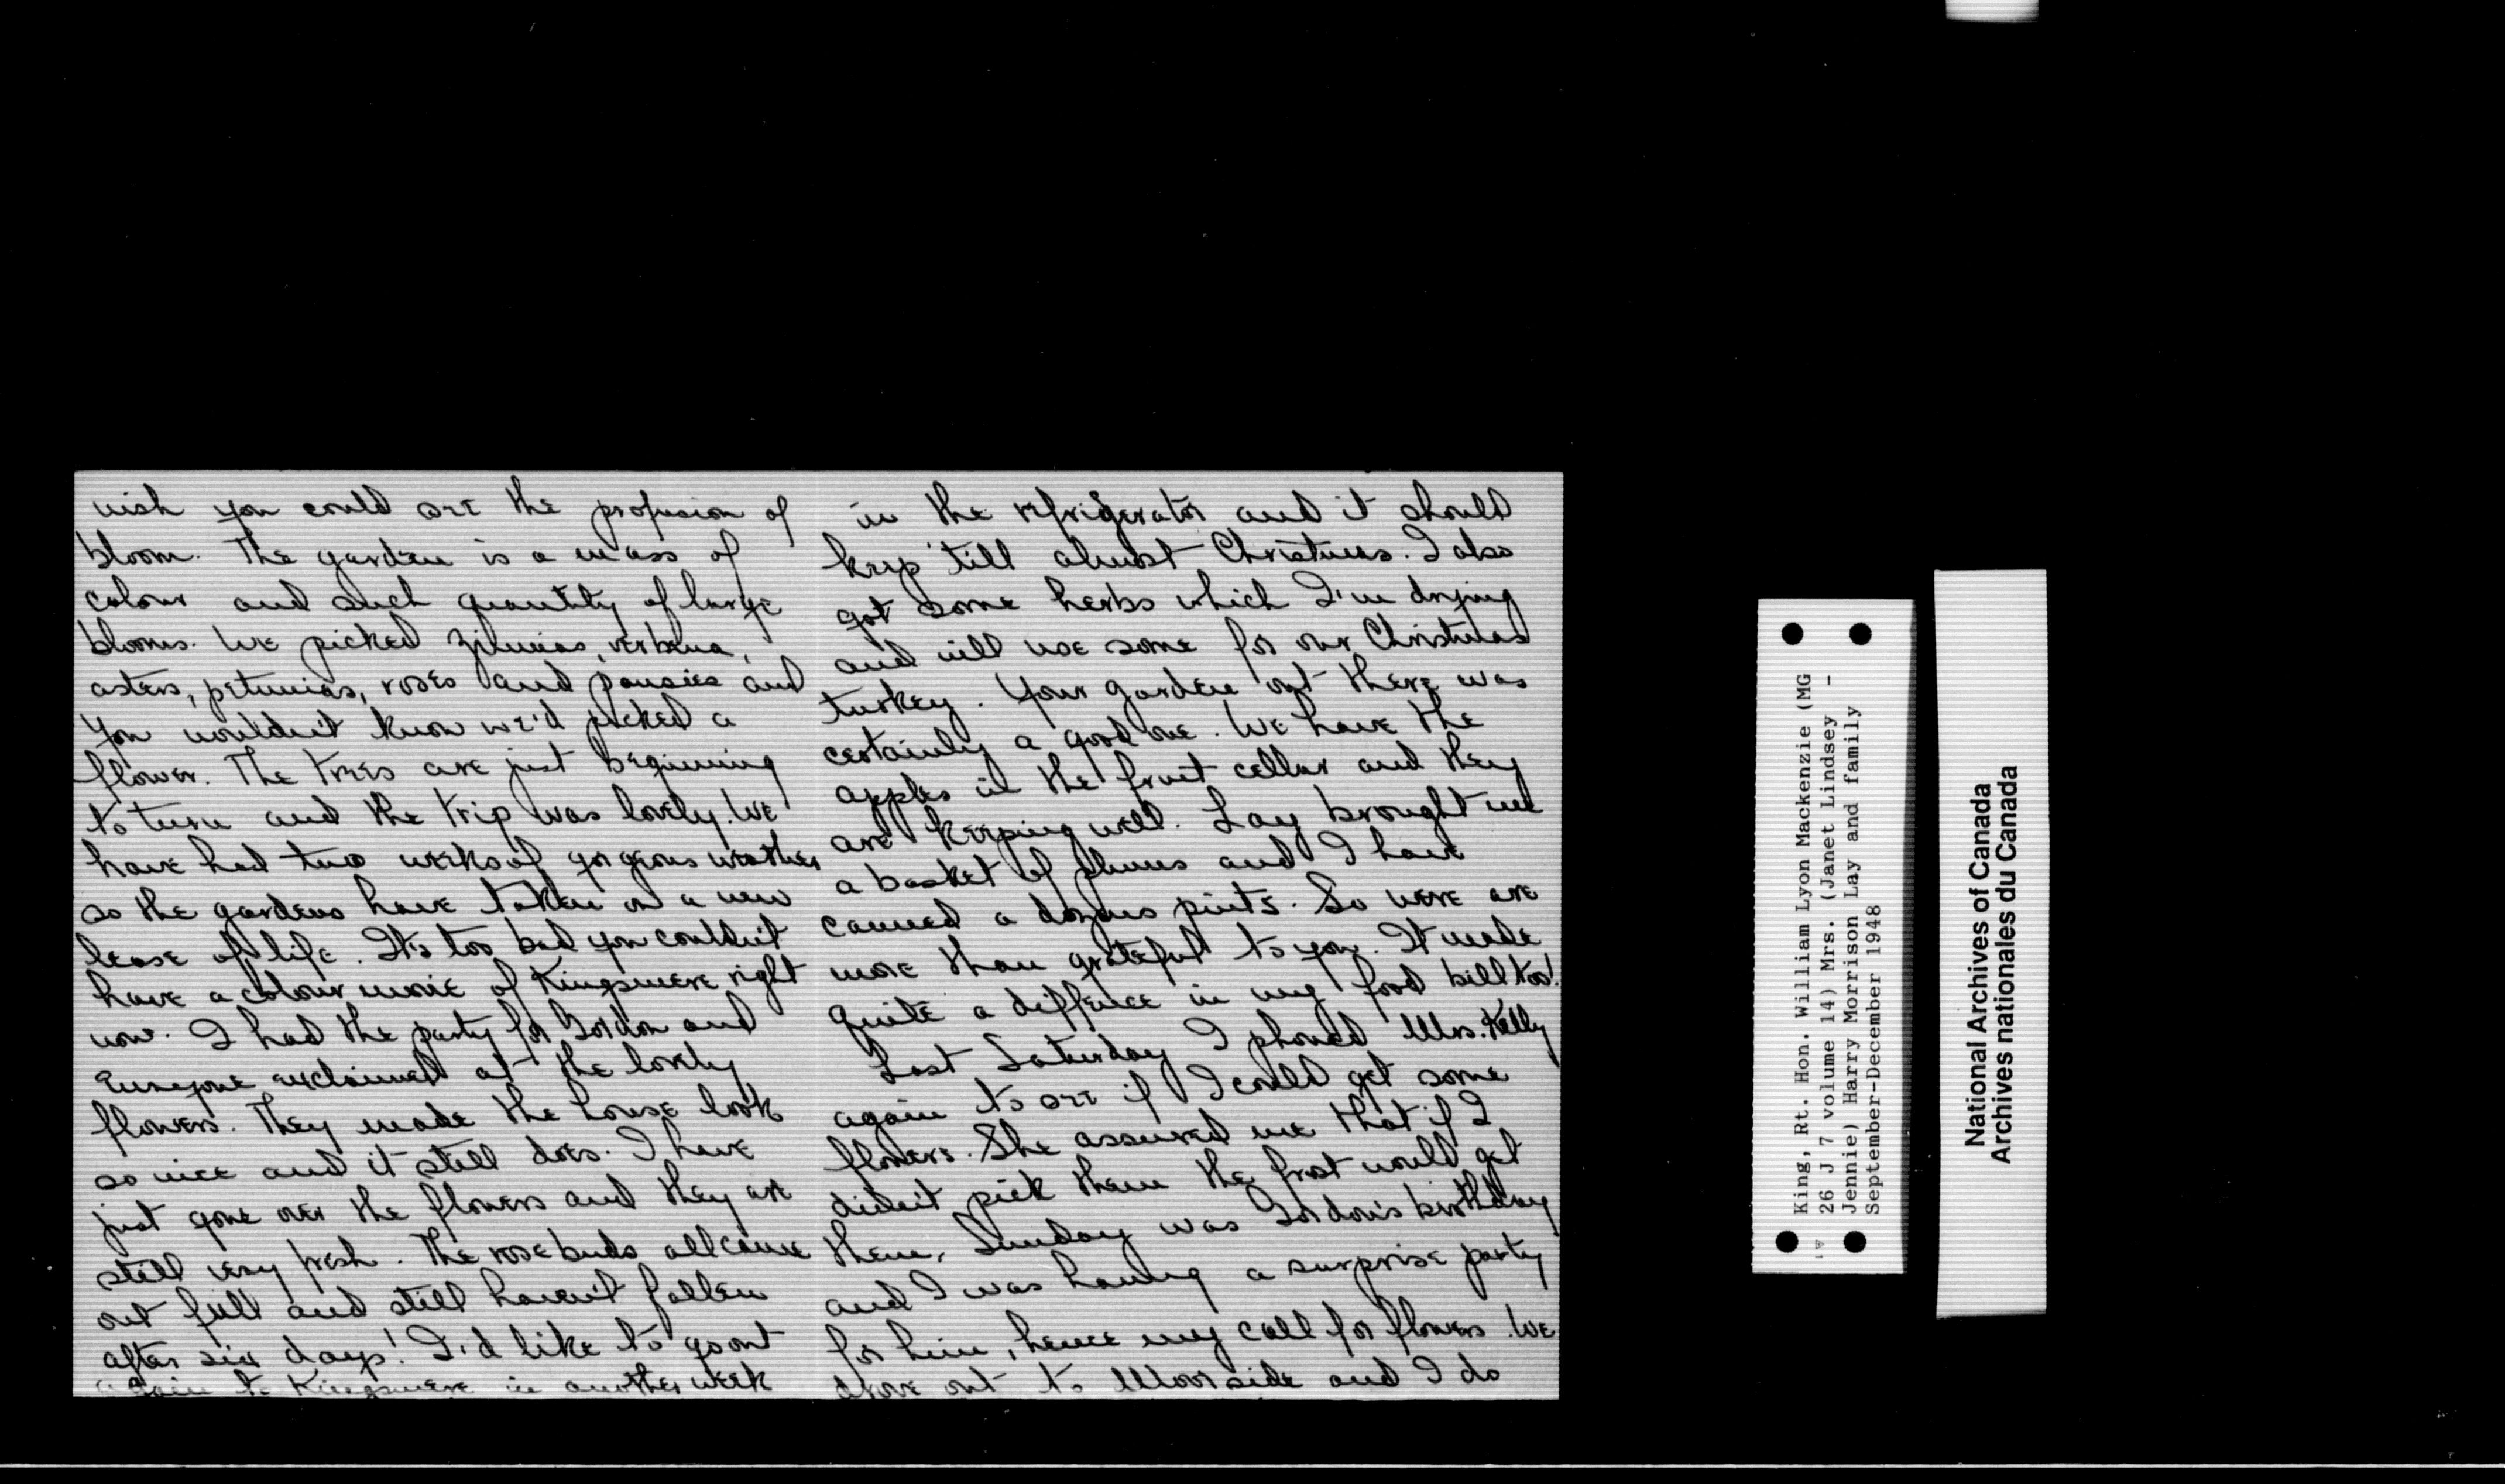 wish you could see the profusion of
bloom. The garden is a mass of
colour and such quantity of large
blooms. We picked zinnias, verbena,
asters, petunias, roses and pansies and
you wouldn't know we'd picked a
flower. The trees are just beginning
to turn and the trip was lovely. We
have had two weeks of gorgeous weather
so the gardens have taken on a new
lease of life. It's too bad you couldn't
have a colour movie of Kingsmere right
now. I had the party for Gordon and
Everyone exclaimed at the lovely
flowers. They made the house look
so nice and it still does. I have
just gone over the flowers and they are
still very fresh. The rosebuds all came
out full and still haven't fallen
after six days! I'd like to go out
again to Kingsmere in another week
in the refrigerator and it should
keep 'till almost Christmas. I also
got some herbs which I'm drying
and will use some for our Christmas
turkey. Your garden out there was
certainly a good one. We have the
apples in the fruit cellar and they
are keeping well. Lay brought me
a basket of plums and I have
canned a dozens pints. So were are
more than grateful to you. It made
quite a diffence in my food bill too!
Last Saturday I phoned Mrs. Kelly
again to see if I could get some
flowers. She assured me that if I
didn't pick them the frost would get
them. Sunday was Gordon's birthday
and I was having a surprise party
for him, hence my call for flowers. We
drove out to Moorside and I do
King, Rt. Hon. William Lyon Mackenzie (MG
26 J 7 volume 14) Mrs. (Janet Lindsey -
Jennie) Harry Morrison Lay and family
September-December 1948
National Archives of Canada
Archives nationales du Canada